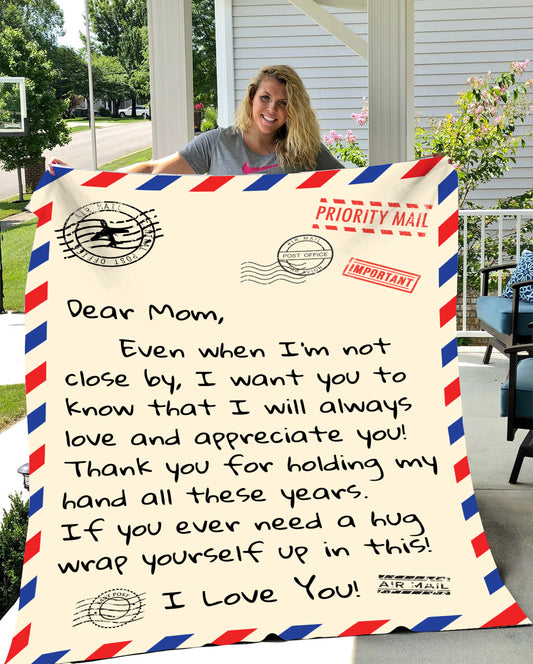 AIR MAIL
POST OFFICE
PRIORITY MAIL
AIR MAIL
POST OFFICE
IMPORTANT
Dear Mom,
Even when I'm not
close by, I want you to
know that I will always
love and appreciate you!
Thank you for holding my
hand all these years.
If you ever need a hug
wrap yourself up in this!
I Love You!
AIR MAIL